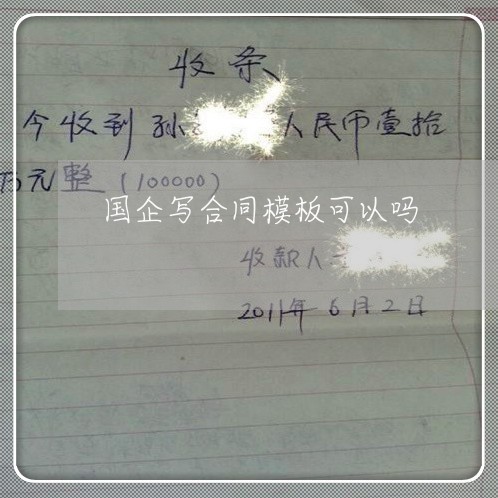 收条
今收到孙 人民币壹拾
万元整（100000）
国企写合同模板可以吗
收款人
2011年6月2日